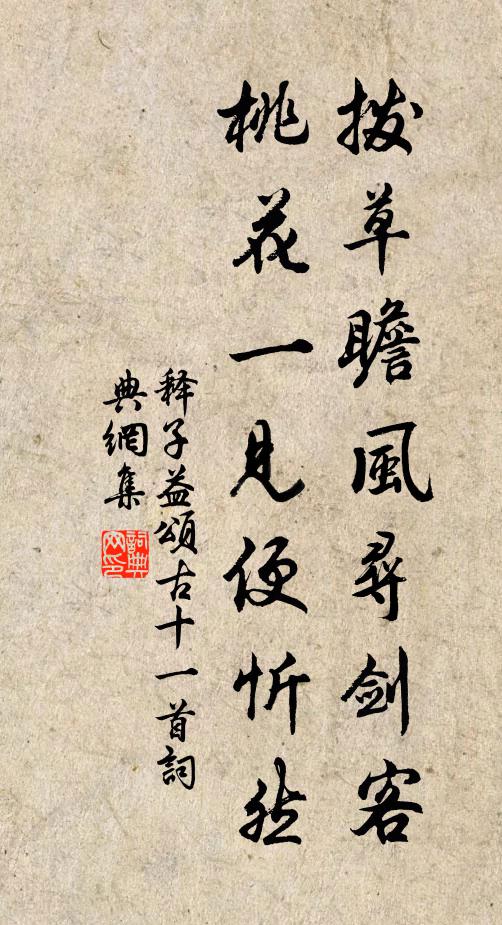 拨草瞻風尋劍客
桃花一見便忻然
释子益頌古十一首詞
典網集
詞典网印